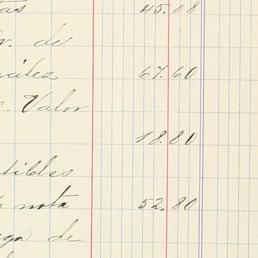 tas 45.08
v. de
iales 67.60
s. Valor
18.80
tibles
nota 52.80
ago de